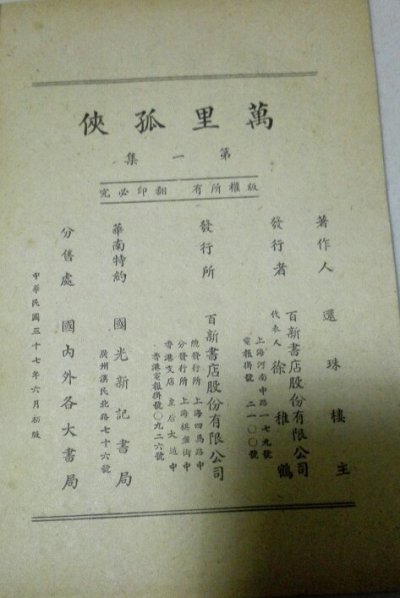 萬里孤俠
第一集
版權所有 翻印必究
著作人 還珠樓主
發行者 百新書店股份有限公司
代表人 徐稚鶴
上海河南中路一七九號
電報掛號 二一〇〇號
發行所 百新書店股份有限公司
總發行所 上海四馬路中
分發行所 上海棋盤街中
香港支店 皇后大道中
香港電報掛號〇九二六號
華南特約 國光新記書局
廣州漢民北路七十六號
分售處 國內外各大書局
中華民國三十七年六月初版